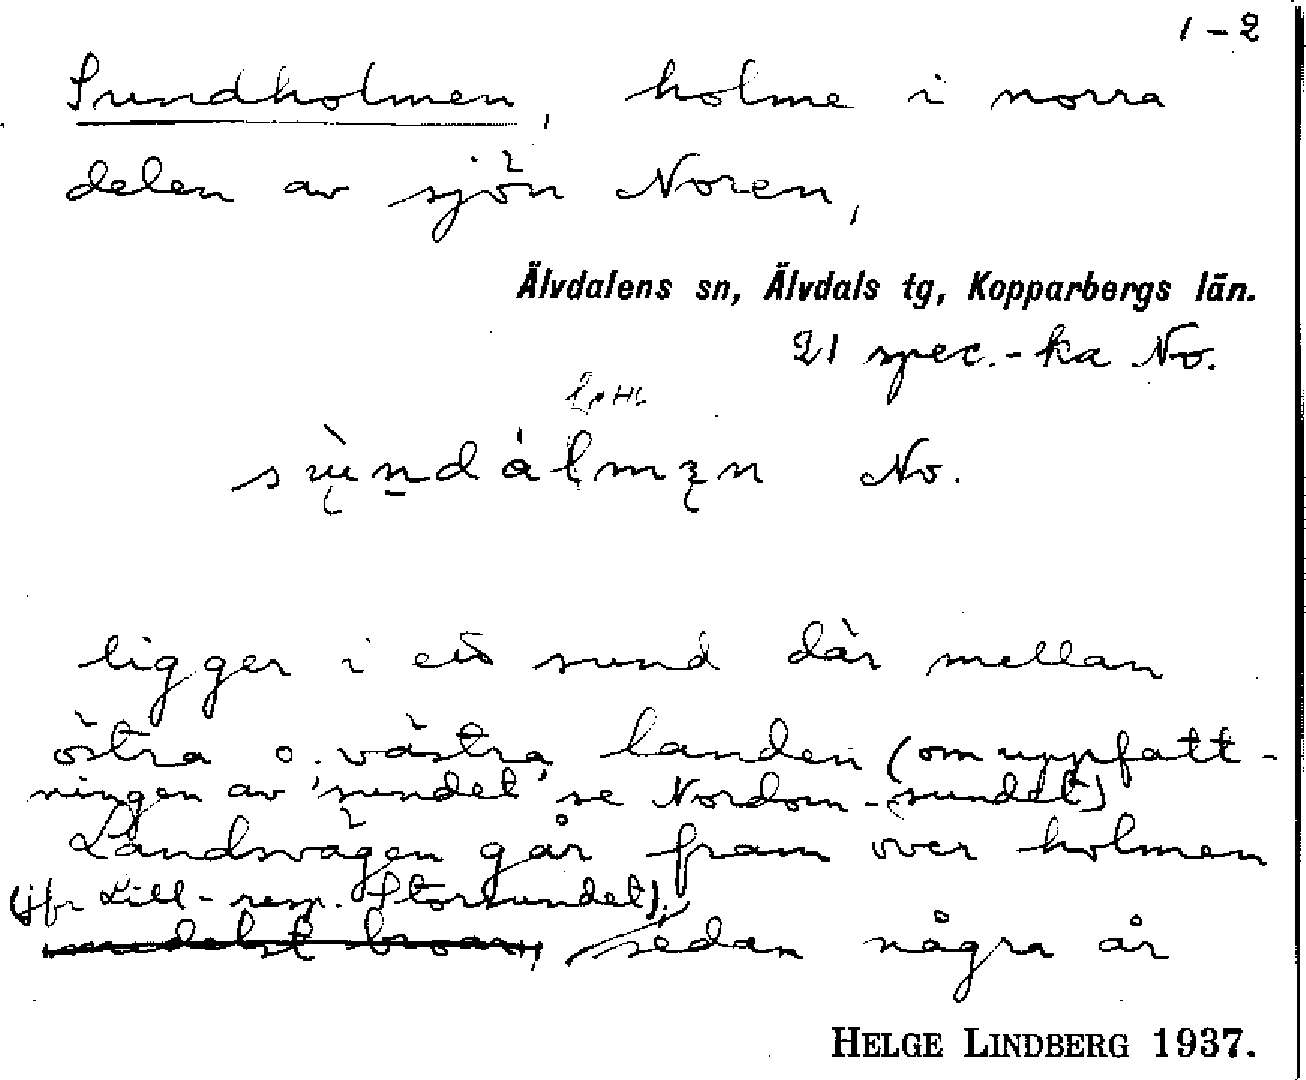 1-2
Sundholmen, holme i norra
delen av sjön Noren,
Älvdalens sn, Älvdals tg, Kopparbergs län.
21 spec.-ka No.
No.
ligger i ett sund där mellan
östra o. västra landen (om uppfatt-
ningen av 'sundet' se Nordom-sundet)
Landsvägen går fram över holmen
(jfr Lill- resp. Storsundet).
medelst broar, sedan några år
HELGE LINDBERG 1937.